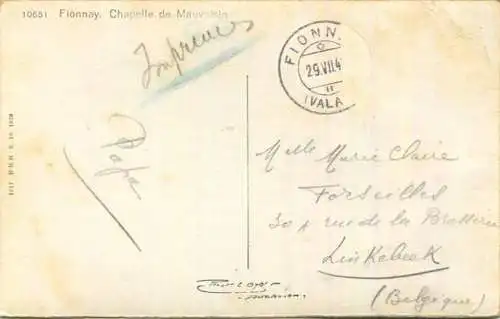 10651 Fionnay. Chapelle de Mauvoisin
Imprimés
FIONN
29.VII.4
(VALA
Papa
Melle Marie Claire
Forseilles
304 rue de la Brasserie
Linkebeek
(Belgique)